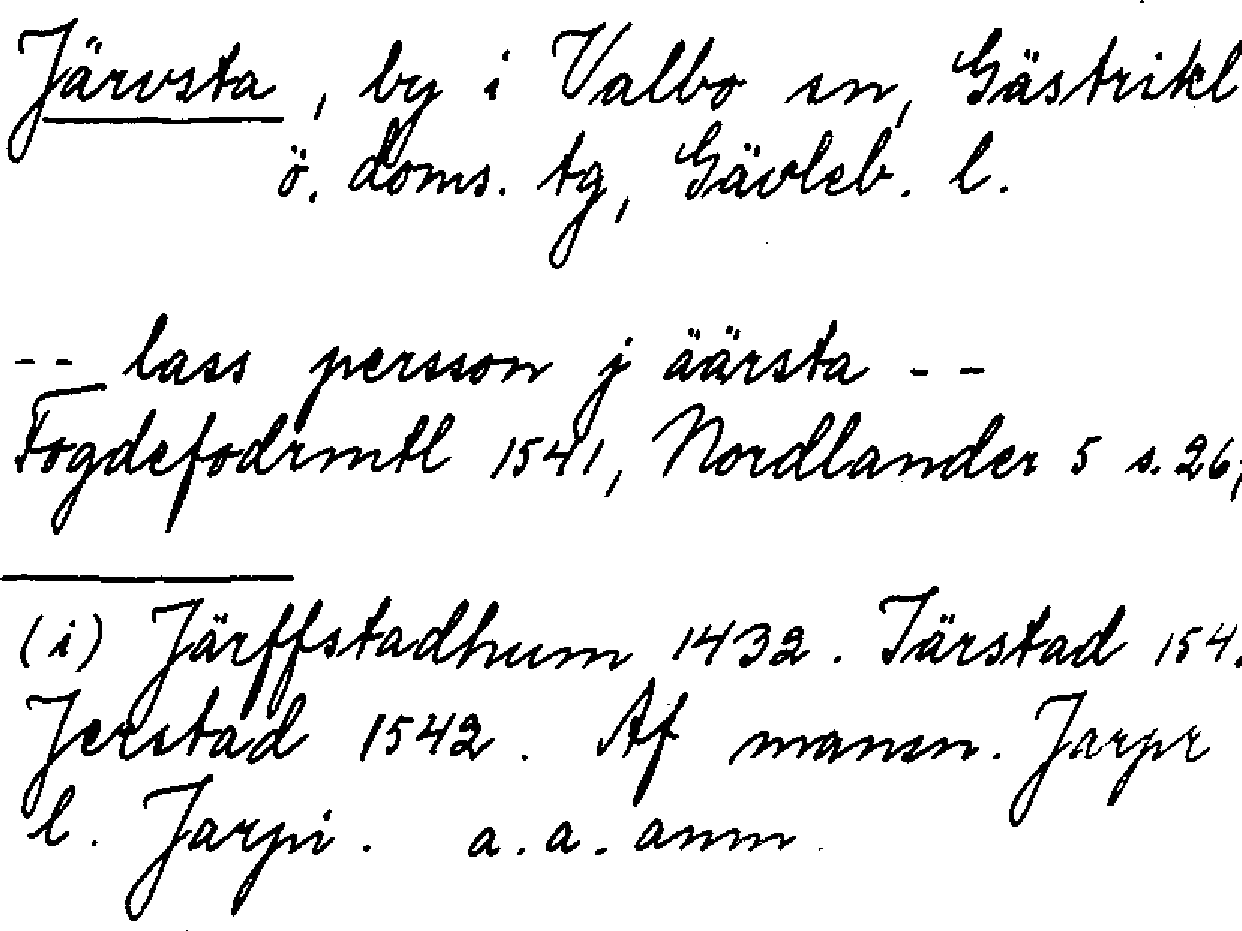 Järvsta, by i Valbo sn, Gästrikl
ö. doms. tg, Gävleb. l.
-- lass persson j äärsta --
Fogdefodrmtl 1541, Nordlander 5 s. 26,
(i) Järffstadhum 1432. Järstad 154.
Jerstad 1542. Af mansn. Jarpr
l. Jarpi. a. a. anm